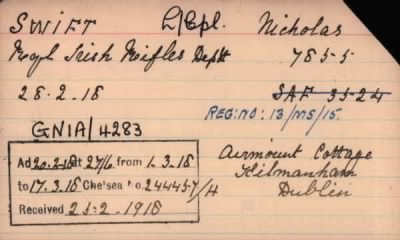 SWIFT L/Cpl. Nicholas
Royl Irish Rifles Depôt 785-5
28.2.18 SAF 35-24
REG: NO: 13/MS/15.
GNIA/4283
Ad 20.2.18 at 27/6 from 1.3.18
to 17.3.18 Chelsea No. 244457/H
Received 25.2.1918
Airmount Cottage
Kilmanham
Dublin